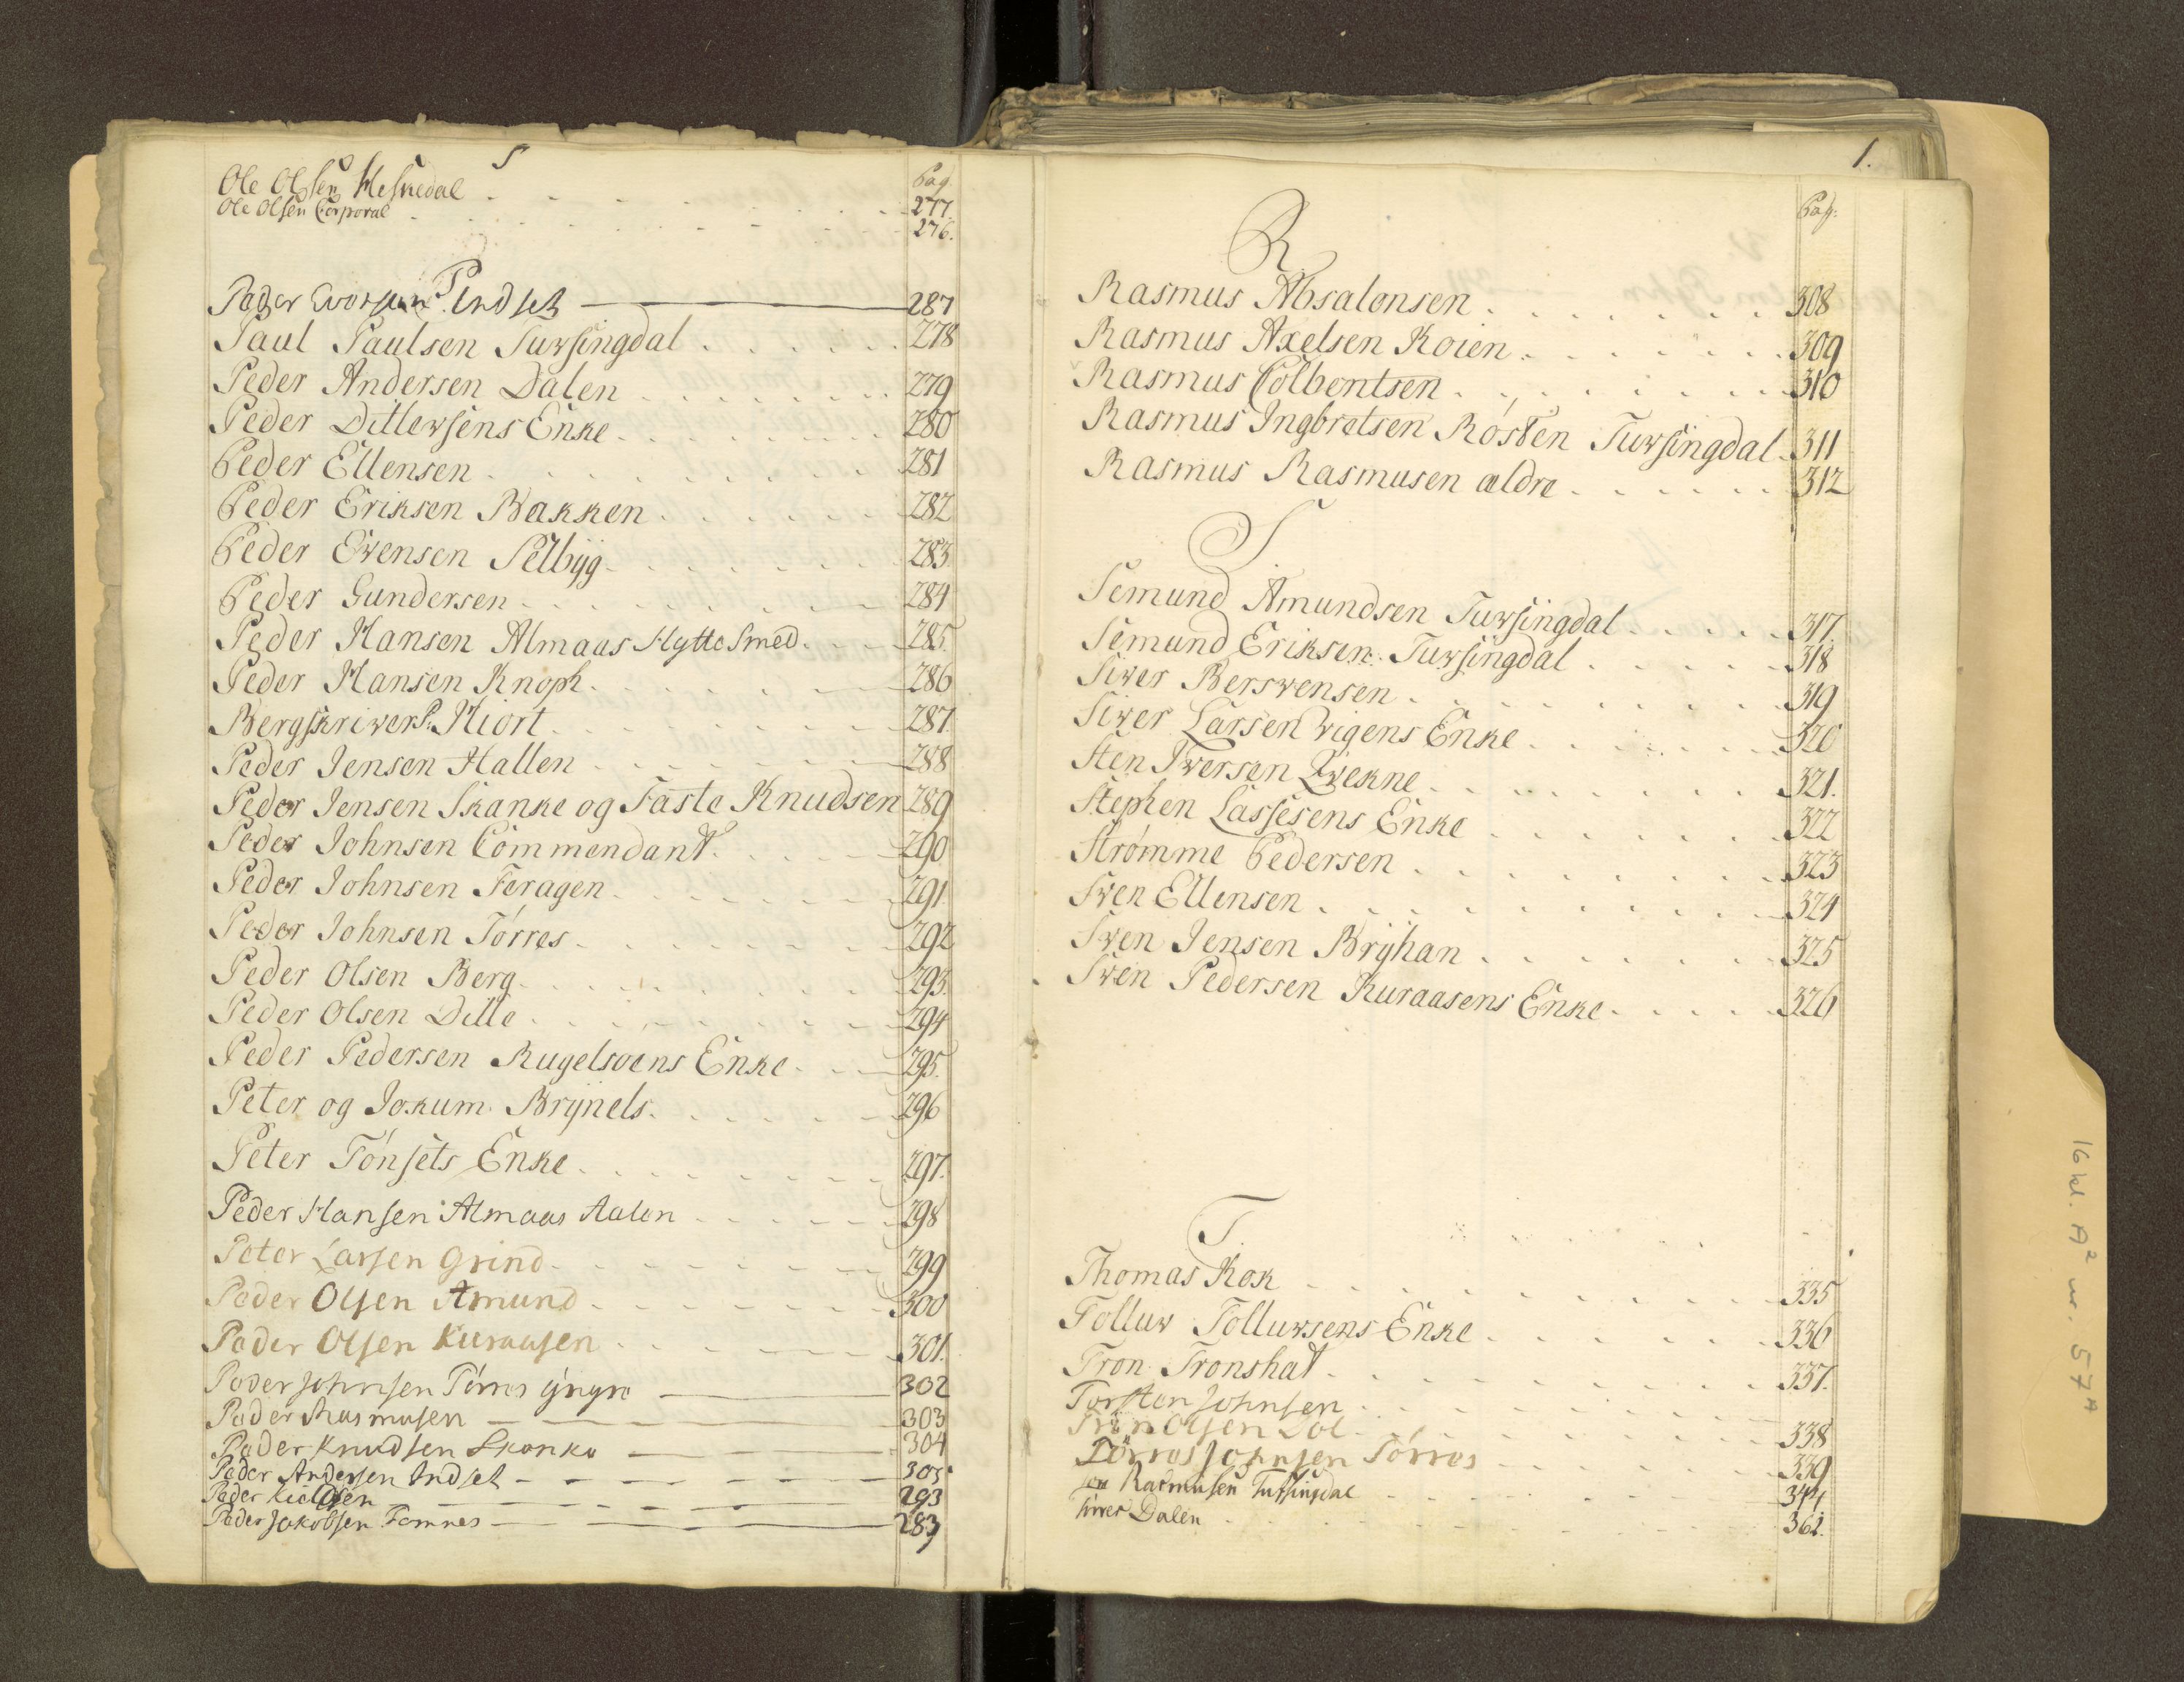 Pag.
Ole Olsen Heskedal 277.
Ole Olsen Corporal 276.
P
Peder Evorsen Indset 287
Paul Paulsen Tuwsingdal 278
Peder Andersen Dalen 279
Peder Ditlewsens Enke 280
Peder Ellensen 281
Peder Eriksen Bakken 282
Peder Evensen Selbÿg 283
Peder Gundersen 284
Peder Hansen Almaas Hytte Smed 285
Peder Hansen Knoph 286
Bergskriver P. Hiort 287
Peder Jensen Hallen 288
Peder Jensen Skanke og Faste Knudsen 289
Peder Johnsen Commendant 290
Peder Johnsen Feragen 291
Peder Johnsen Tórres 292
Peder Olsen Berg 293.
Peder Olsen Dille 294
Peder Pedersen Rugelsoens Enke 295.
Peter og Jokum Brÿnels 296
Peter Tónsets Enke 297.
Peder Hansen Almaas Aalen 298
Peter Larsen Grind 299
Peder Olsen Amund 300
Peder Olsen Kuraasen 301.
Peder Johnsen Tórres ÿngre 302
Peder Rasmusen 303
Peder Knudsen Skanke 304
Peder Andersen Indset 305
Peder Kieldsen 293
Peder Jakobsen Tamnes 283
1.
Pag:
R
Rasmus Absalonsen 308
Rasmus Axelsen Koien 309
Rasmus Colbentsen 310
Rasmus Ingbretsen Rósten Tuwsingdal 311
Rasmus Rasmusen ældre 312
S
Semund Amundsen Tuwsingdal 317.
Semund Eriksen Tuwsingdal 318
Siver Berswensen 319
Siver Larsen Vigens Enke 320
Sten Iversen Qvekne 321.
Stephen Lassesens Enke 322
Strømme Pedersen 323
Sven Ellensen 324
Sven Jensen Brÿhan 325
Sven Pedersen Kuraasens Enke 326
T.
Thomas Kok 335
Tolluw Tolluwsens Enke 336
Tron Tronshat 337.
Torsten Johnsen
Tron Olsen Dol 338
Tórres Johnsen Tórres 339
Rasmusen Tufsingdal 344
Dalen 362.
16 kl. A² nr. 57 A